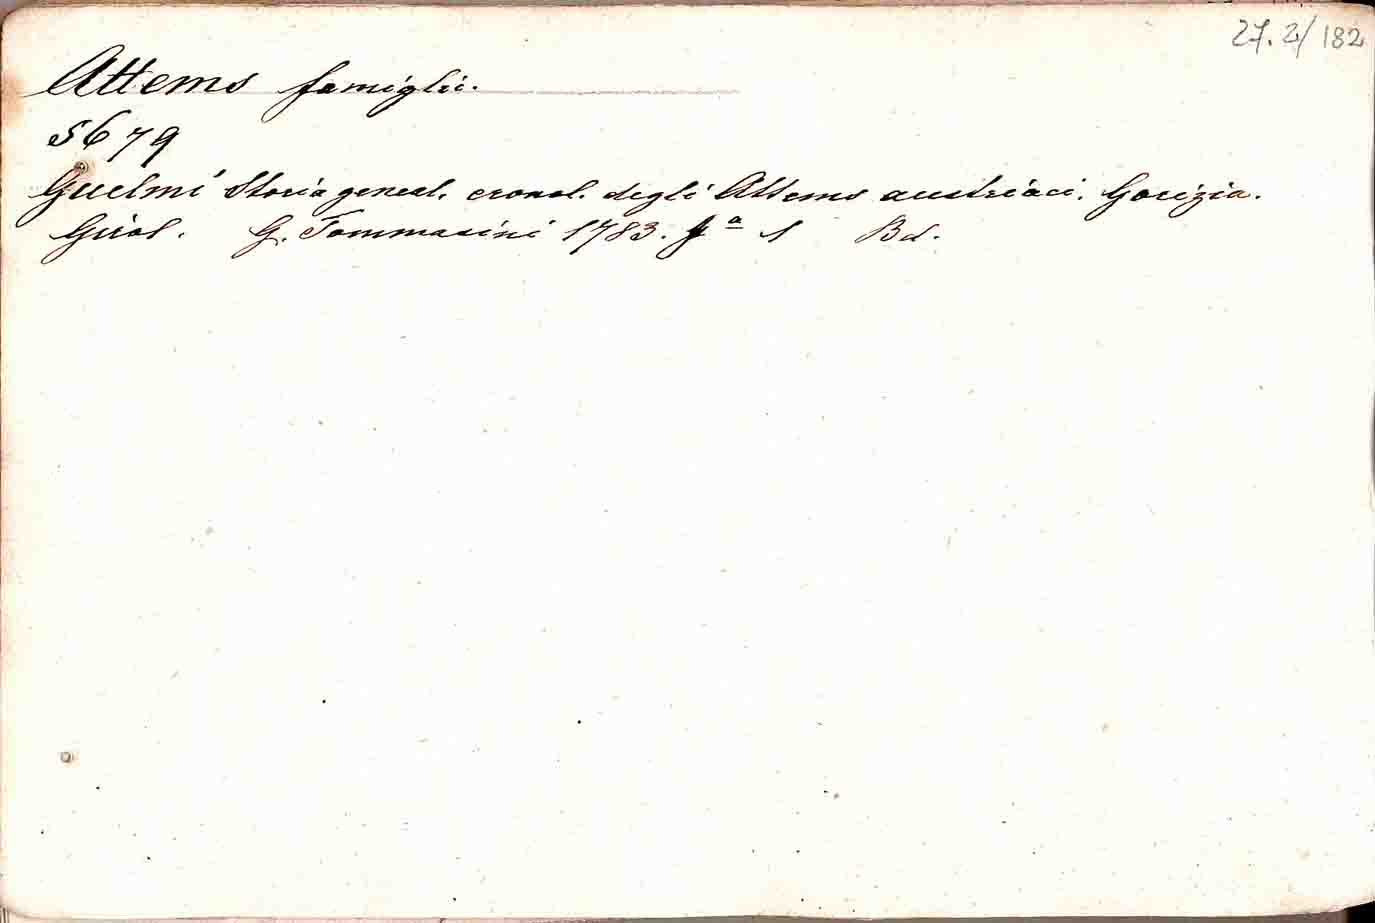 27.2/182
Attems famiglie.
5679
Guelmi Storia geneal. cronol. degli Attems austriaci. Gorizia.
Girol. G. Tommasini 1783. 1 Bd.